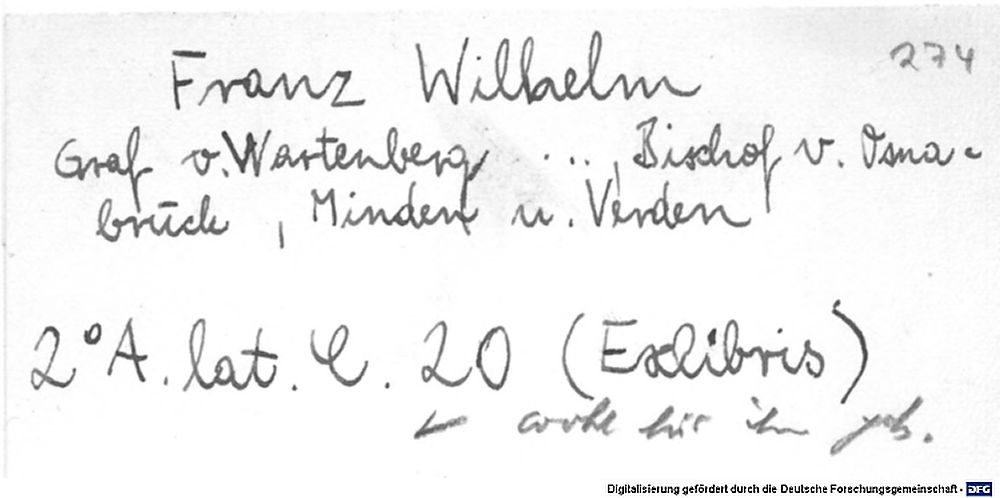 274
Franz Wilhelm
Graf v. Wartenberg ..., Bischof v. Osna-
brück, Minden u. Verden
2° A. lat. C. 20 (Exlibris)
wohl für ihn geb.
Digitalisierung gefördert durch die Deutsche Forschungsgemeinschaft - DFG